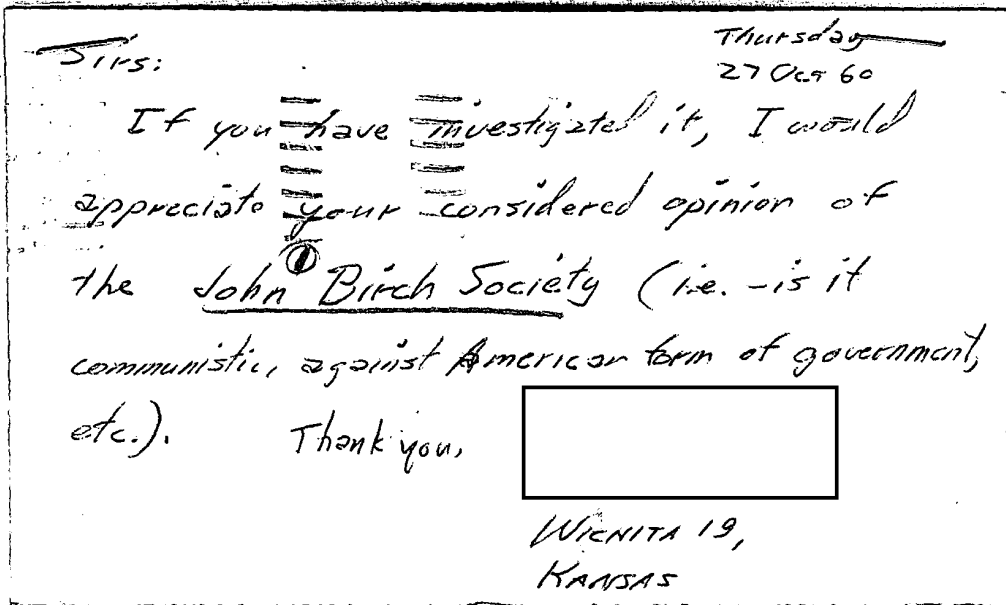 Thursday
Sirs:
27 Oct 60
If you have investigated it, I would
appreciate your considered opinion of
the John Birch Society (i.e. - is it
communistic, against American form of government,
etc.). Thank you,
WICHITA 19,
KANSAS